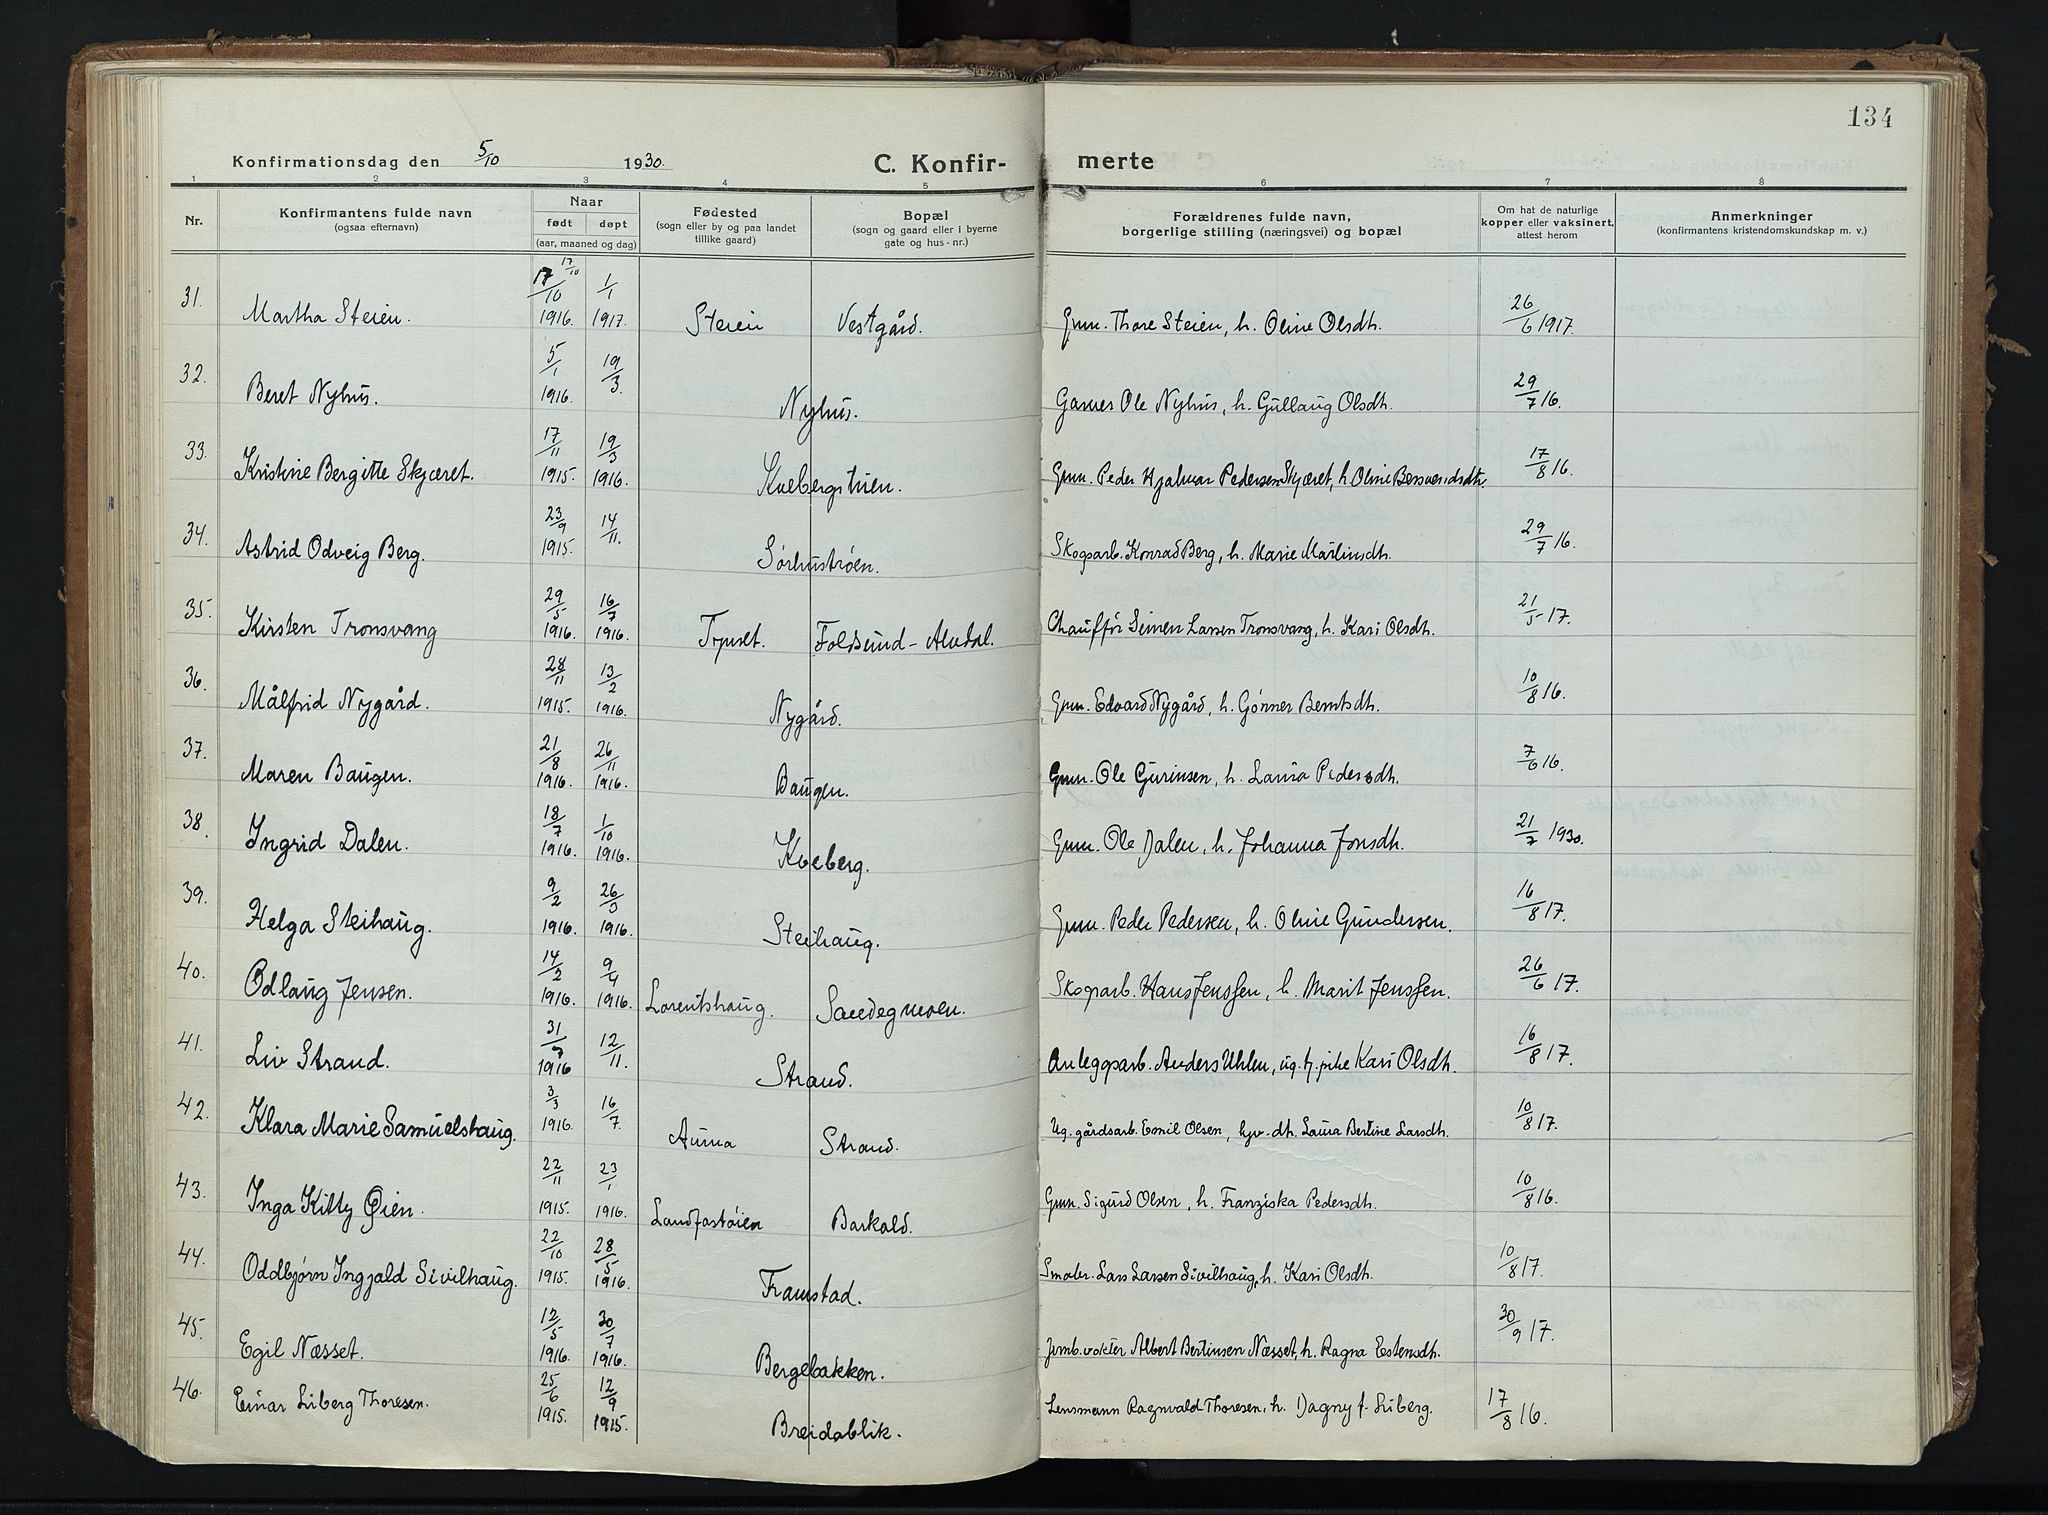 134
Konfirmationsdag den 5/10 1930. C. Konfir- merte
1 2 3 4 5 6 7 8
Nr. Konfirmantens fulde navn (ogsaa efternavn) Naar født døpt (aar, maaned og dag) Fødested (sogn eller by og paa landet tillike gaard) Bopæl (sogn og gaard eller i byerne gate og hus-nr.) Forældrenes fulde navn, borgerlige stilling (næringsvei) og bopæl Om hat de naturlige kopper eller vaksinert, attest herom Anmerkninger (konfirmantens kristendomskundskap m. v.)
31. Martha Steien. 17/10 17/10 1916. 1/1 1917. Steien Vestgård. Gmr. Thore Steien, h. Oline Olsdh. 26/6 1917.
32. Beret Nyhus. 5/1 1916. 19/3. Nyhus. Ole Nyhus, h. Gullaug Olsdh. 29/7 16.
33. Kristine Bergitte Skjæret. 17/11 1915. 19/3 1916. Kvebergstuen. Gmr. Peder Hjalmar Pedersen Skjæret, h. Oline 17/8 16.
34. Astrid Odveig Berg. 23/9 1915. 14/11. Sørhustrøen. Skogsarb. Konrad Berg, h. Marie Martinsdh. 29/7 16.
35. Kirsten Tronsvang 29/5 1916. 16/7 1916. Tynset. Foldsund - Alvdal. Chauffør Simen Larsen Tronsvang, h. Kari Olsdh. 21/5 17.
36. Målfrid Nygård. 28/11 1915. 13/2 1916. Nygård. Gmr. Edvard Nygård, h. Gønner Berntsdh. 10/8 16.
37. Maren Baugen. 21/8 1916. 26/11 1916. Baugen. Gmr. Ole h. Laura Pedersdh. 7/6 16.
38. Ingrid Dalen. 18/7 1916. 1/10 1916. Kveberg. Gmr. Ole Dalen, h. Johanna Jonsdh. 21/7 1930.
39. Helga Steihaug. 9/2 1916. 26/3 1916. Steihaug. Gmr. Peder Pedersen, h. Oline Gundersen. 16/8 17.
40. Odlaug Jensen. 14/2 1916. 9/4 1916. Lorentshaug. Sandegmoen. Skogsarb. Hans Jenssen, h. Marit Jenssen. 26/6 17.
41. Liv Strand. 31/7 1916 12/11. Strand. Anleggsarb. Anders Uhlen, ug. f. pike Kari Olsdh. 16/8 17.
42. Klara Marie Samuelshaug. 3/3 1916. 16/7. Auma Strand. Ug. gårdsarb. Emil Olsen, dh. Laura Bertine Larsdh. 10/8 17.
43. Inga Kitty Øien. 22/11 1915. 23/1 1916. Landfastøien Barkald. Gmr. Sigurd Olsen, h. Franziska Pedersdh. 10/8 16.
44. Oddbjørn Ingjald Sivilhaug. 22/10 1915. 28/5 1916. Framstad. Småbr. Lars Larsen Sivilhaug, h. Kari Olsdh. 10/8 17.
45. Egil Næsset. 12/5 1916. 30/7 1916. Bergebakken. Jernb.vokter Albert Bertinsen Næsset, h. Ragna Estensdh. 30/9 17.
46. Einar Liberg Thoresen. 25/6 1915. 12/9 1915. Breidablik. Lensmann Ragnvald Thoresen, h. Dagny f. Liberg. 17/8 16.